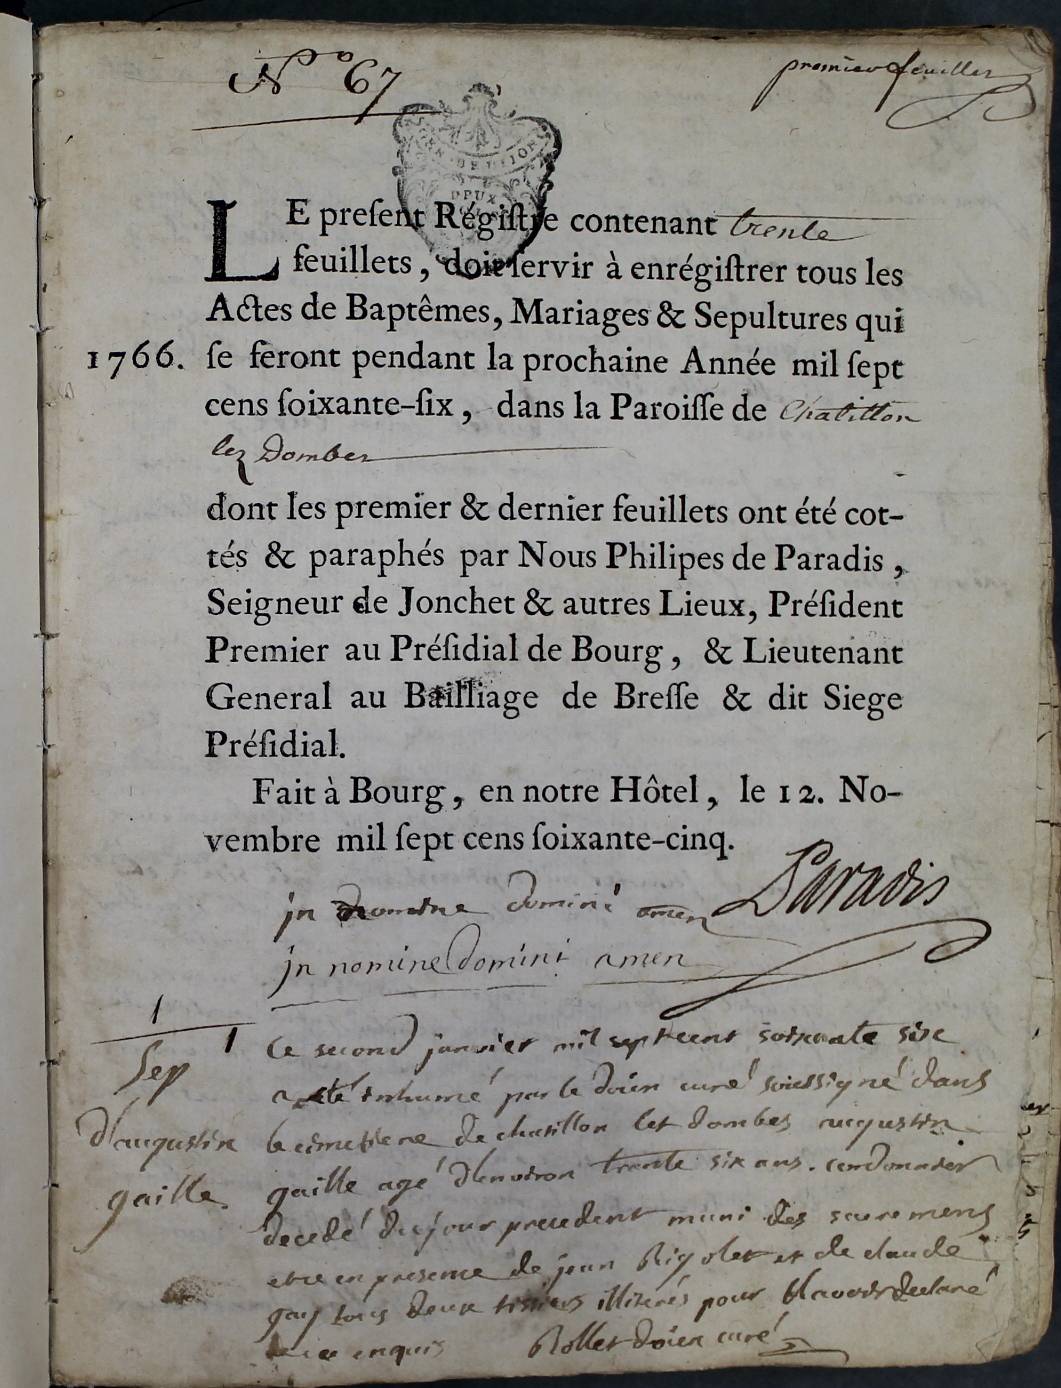 N.º 67
premier feuillet
GEN. DE DIJON
DEUX
LE preſent Régiſtre contenant trente
feuillets, doit ſervir à enrégiſtrer tous les
Actes de Baptêmes, Mariages & Sepultures qui
1766. ſe feront pendant la prochaine Année mil ſept
cens ſoixante-ſix, dans la Paroiſſe de Chatillon
lez Dombes
dont les premier & dernier feuillets ont été cot-
tés & paraphés par Nous Philipes de Paradis,
Seigneur de Jonchet & autres Lieux, Préſident
Premier au Préſidial de Bourg, & Lieutenant
General au Bailliage de Breſſe & dit Siege
Préſidial.
Fait à Bourg, en notre Hôtel, le 12. No-
vembre mil ſept cens ſoixante-cinq.
Paradis
jn nomine domini amen
jn nomine domini amen
1
1
Sep
d'augustin
gaille.
Ce second janvier mil sept cent soixante six
a eté inhumé par le doien curé soussigné dans
le cimetiere de chatillon let dombes augustin
gaille agé d'environ trente six ans. cordonnier
decedé du jour precedent muni des sacremens
en presence de jean Rigolet et de claude
gay tous deux tissiers illiterés pour l'avoir declaré
de ce enquis Rollet doien curé